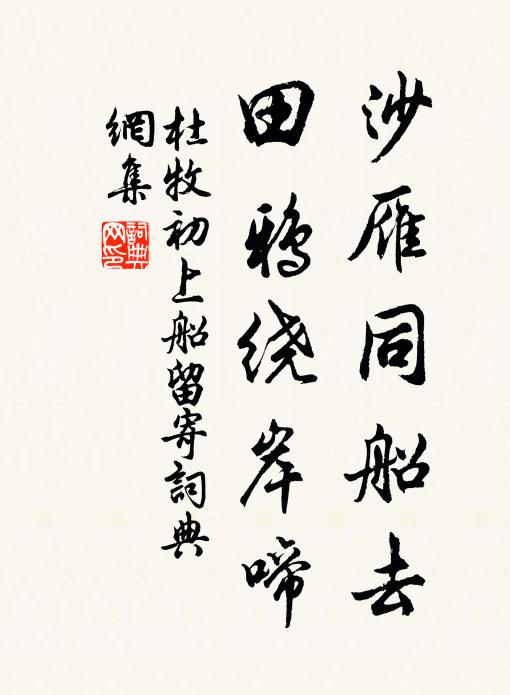 沙雁同船去
田鸦绕岸啼
杜牧初上船留寄詞典
網集
詞典
网印